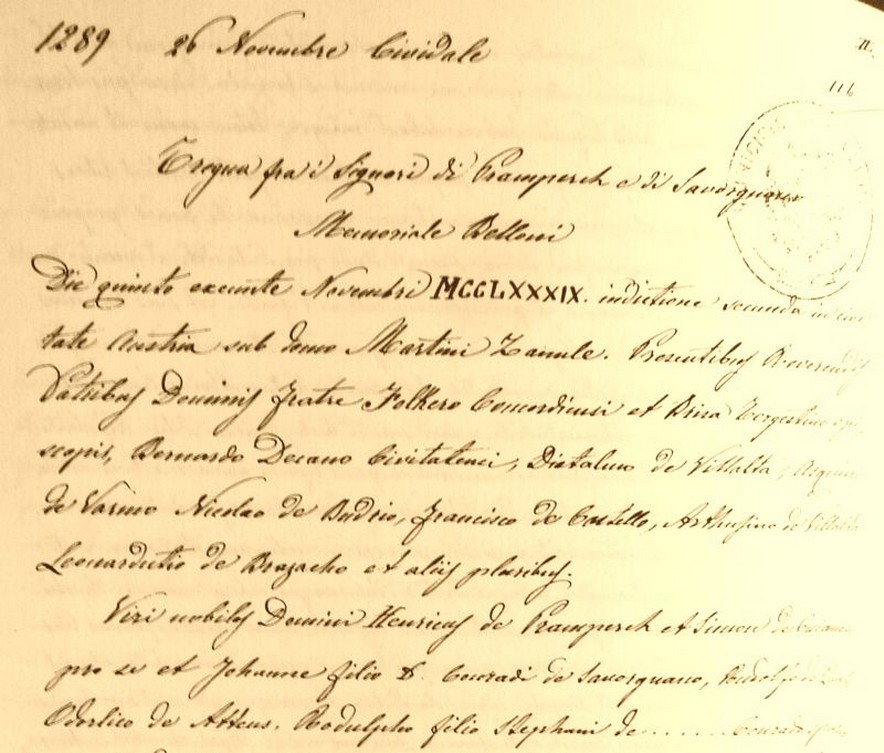 1289 26 Novembre Cividale
116
Tregua fra i Signori di Prampersch e di Savorgnano
Memoriale Belloni
Die quinto exeunte Novembri MCCLXXXIX. indictione secunda in civi
tate Austria sub domo Martini Zanule. Presentibus Reverendis
Patribus Dominis fratre Folkero Concordiensi et Brisa Tergestino epi
scopis, Bernardo Decano Civitatensi, Dietalmo de Villalta,
de Varmo Nicolao de Budrio, Francisco de Castello, Arthusino de Villalta
Leonardutio de Brazacho et aliis pluribus.
Viri nobiles Domini Henricus de Prampersch et Simon de
pro se et Johanne filio D. Conradi de Savorgnano,
Odorlico de Attens. Rodulpho filio Stephani de ...... Conrado